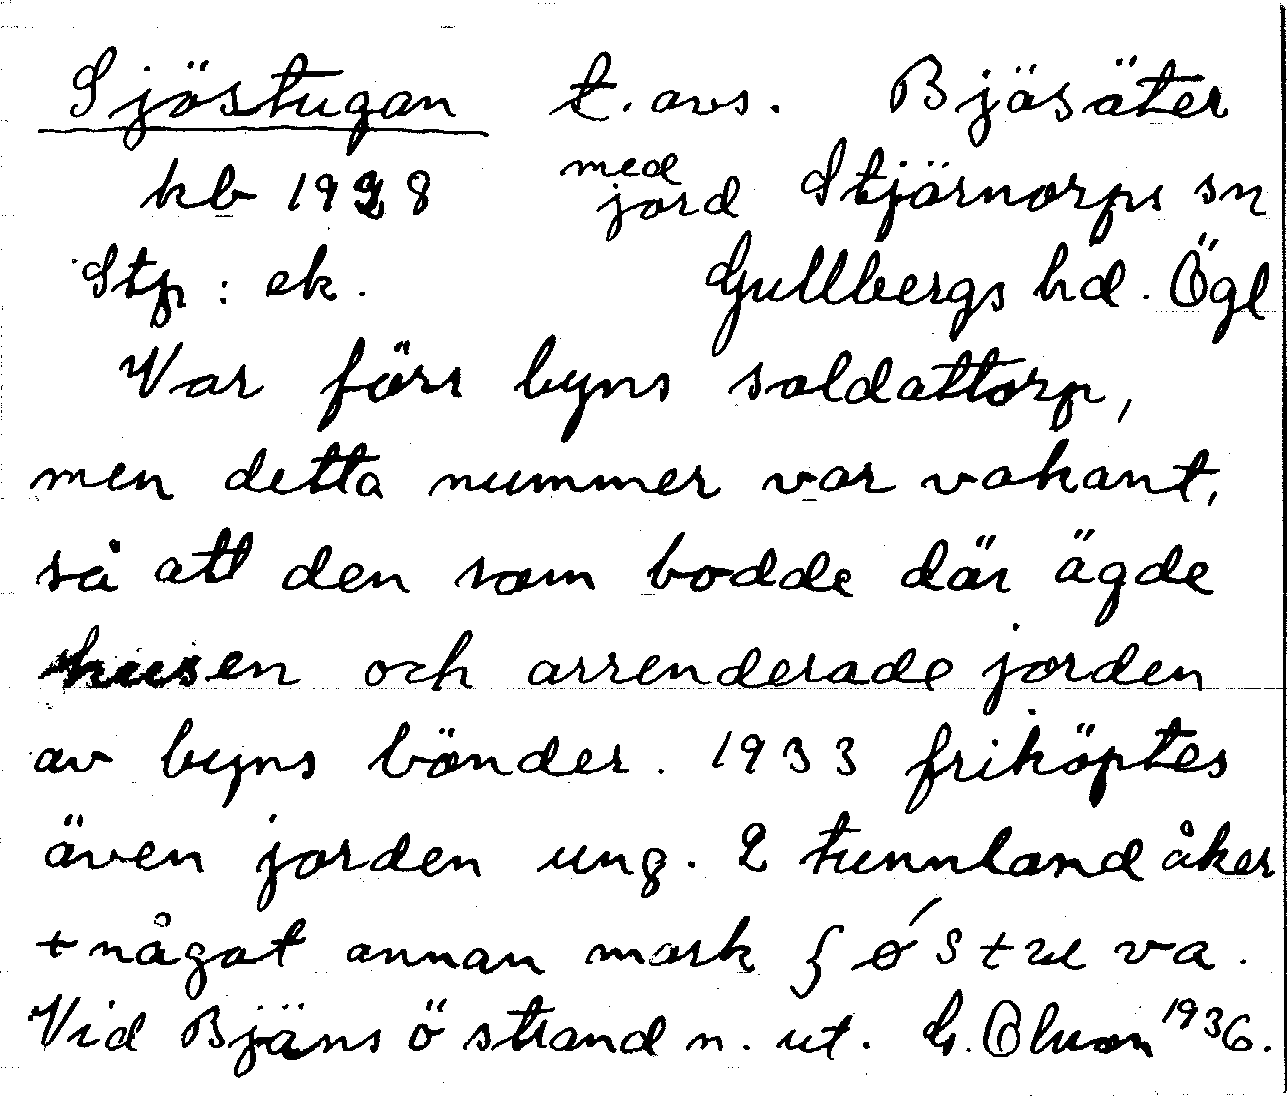 Sjöstugan t. avs. Bjäsäter
kb 1928 med jord Stjärnorps sn
Stp : ek. Gullbergs hd. Ögl
Var förr byns soldattorp,
men detta nummer var vakant,
så att den som bodde där ägde
husen och arrenderade jorden
av byns bönder. 1933 friköptes
även jorden ung. 2 tunnland åker
+ något annan mark
Vid Bjäns ö strand n. ut. G. Olsson 1936.